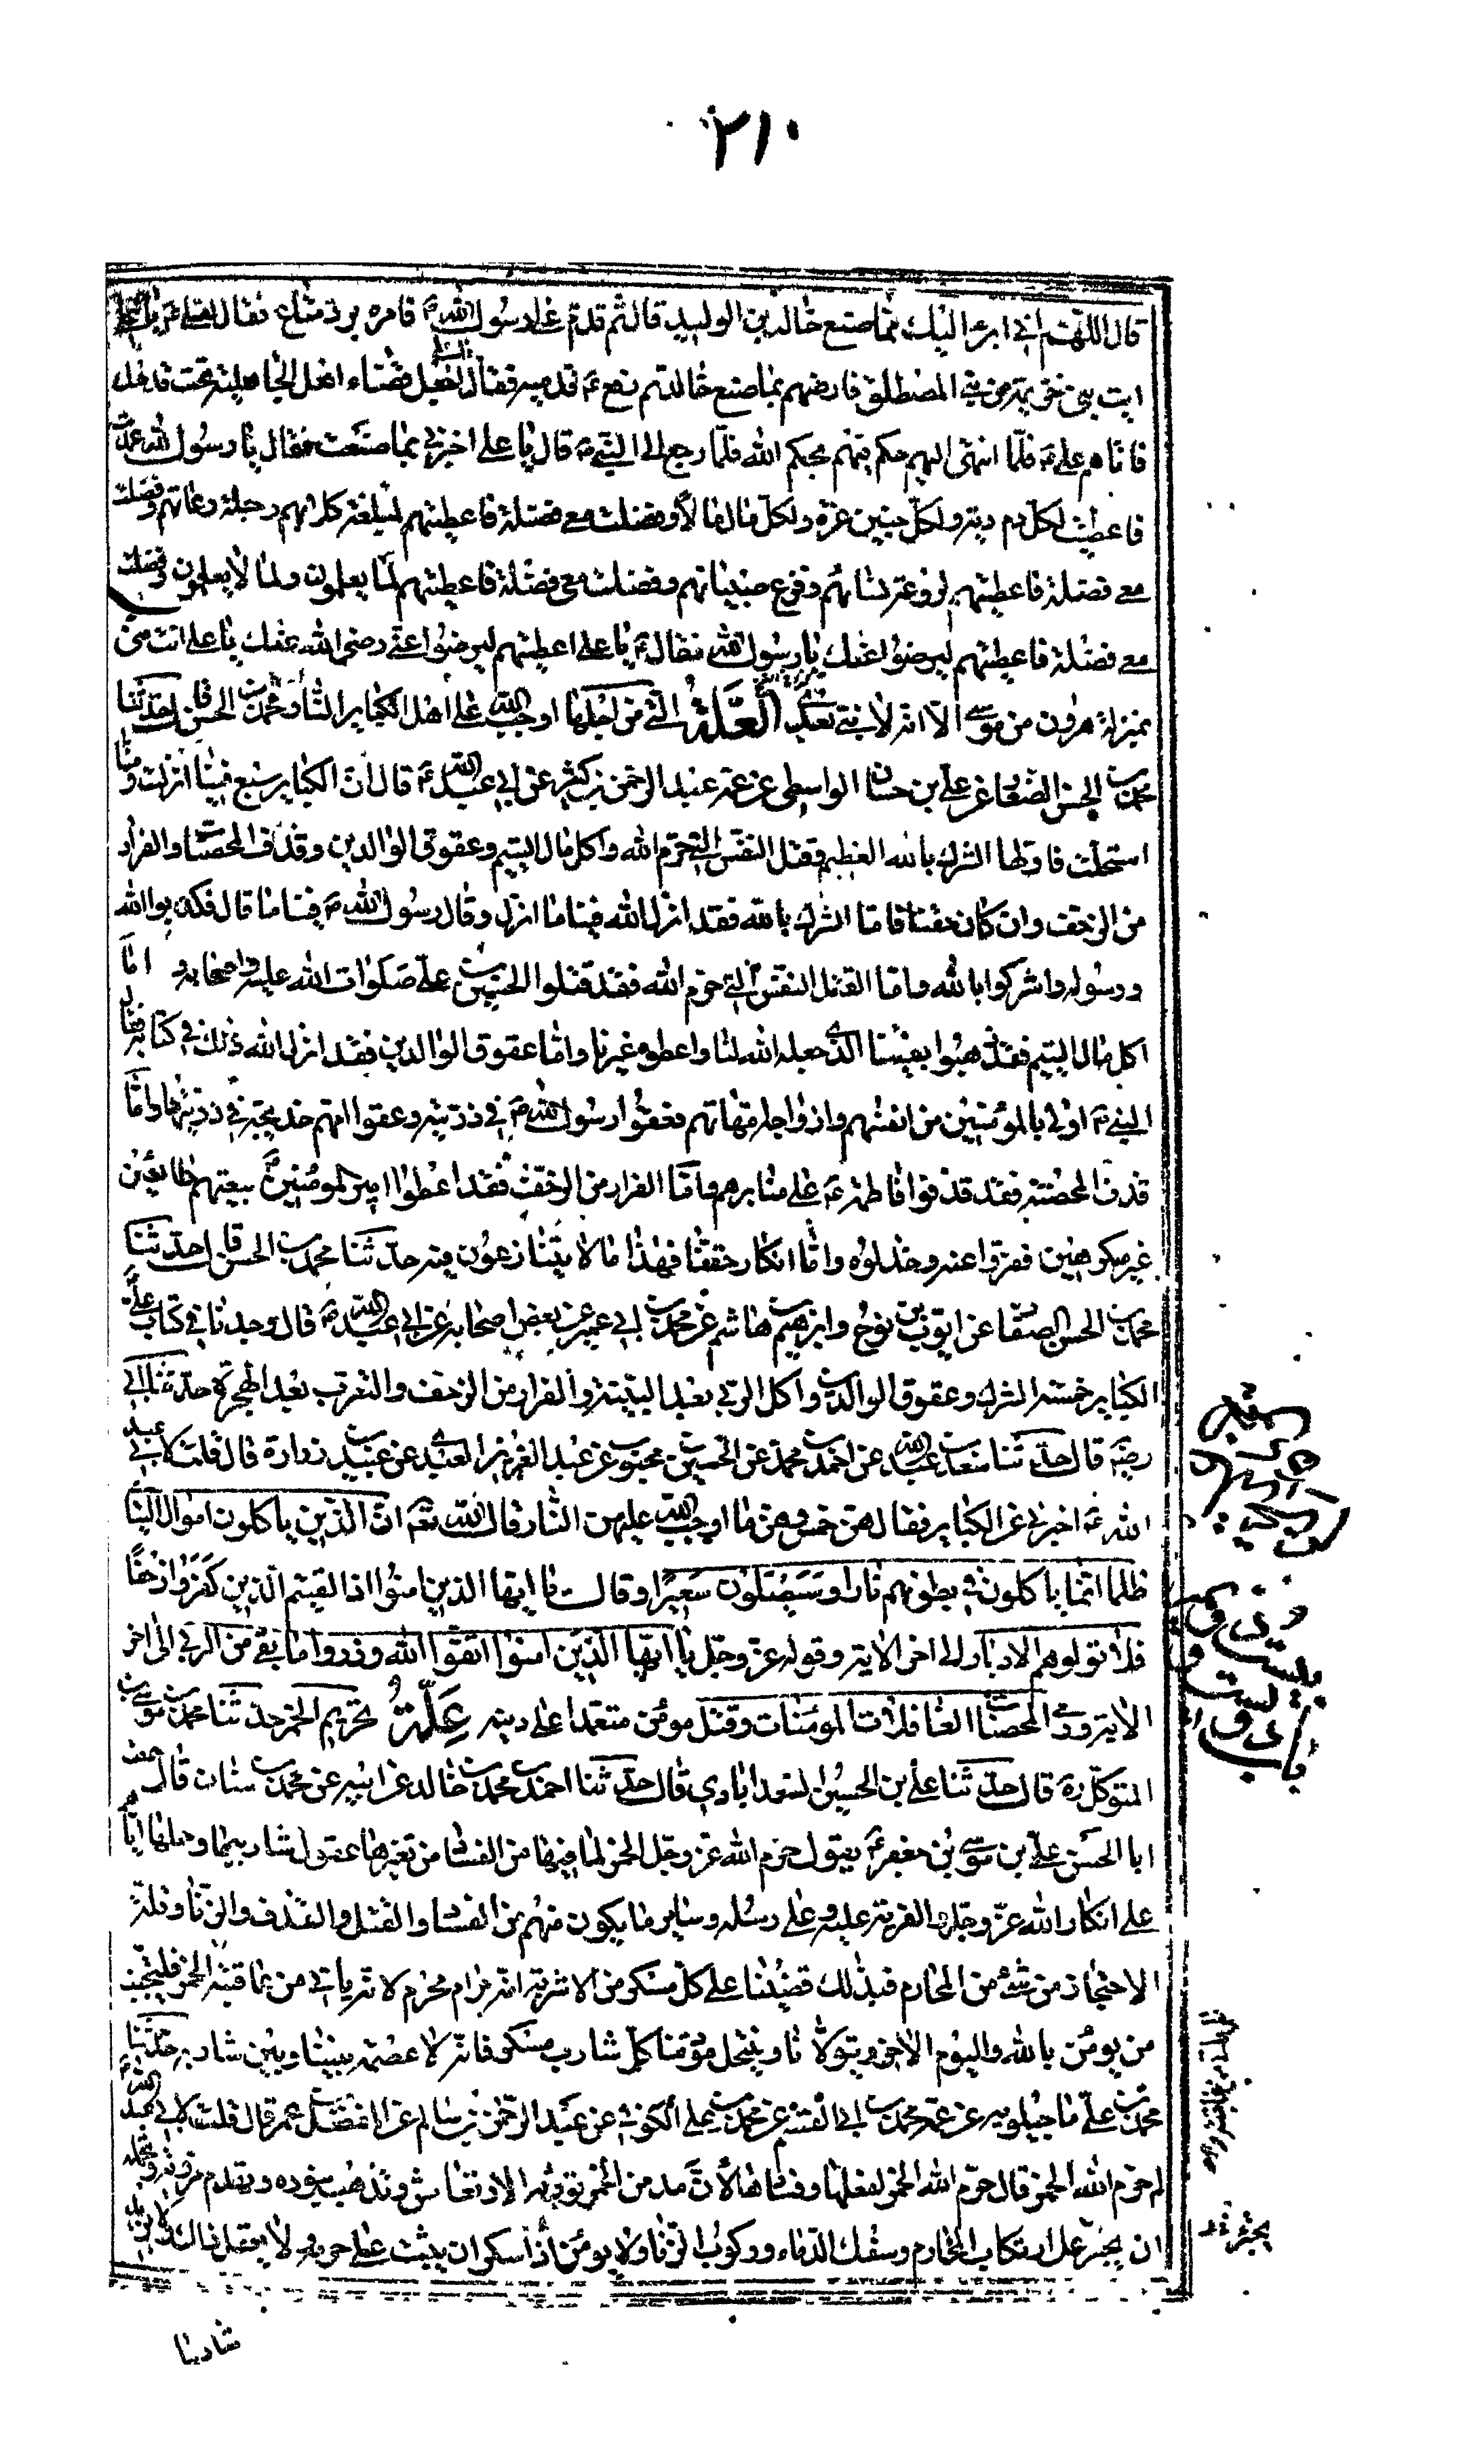 ٢١٠
قال اللهم اني ابرء اليك مما صنع خالد بن الوليد قال ثم قدم على رسول الله ص فامره فقال لعلي ع يا علي
ايت بنى خزيمة من بنى المصطلق فارضهم مما صنع خالد ثم رفع ع قدميه فقال اجعل قضاء اهل الجاهلية تحت قدميك
فاتاهم علي ع فلما انتهى اليهم حكم فيهم بحكم الله فلما رجع الى النبي ص قال يا علي اخبرني بما صنعت فقال يا رسول الله عمدت
فاعطيت لكل دم دية ولكل جنين غرة ولكل مال مالا وفضلت معي فضلة فاعطيتهم لميلغة كلابهم وحبلة رعاتهم وفضلت
معي فضلة فاعطيتهم لروعة نسائهم وفزع صبيانهم وفضلت معي فضلة فاعطيتهم لما يعلمون ولما لا يعلمون وفضلت
معي فضلة فاعطيتهم ليرضوا عنك يا رسول الله فقال ص يا علي اعطيتهم ليرضوا عني رضي الله عنك يا علي انت مني
بمنزلة هرون من موسى الا انه لا نبي بعدي العلة التي من اجلها اوجب الله على اهل الكباير النار محمد بن الحسن قال حدثنا
محمد بن الحسن الصفار عن علي بن حسان الواسطى عن عمه عبد الرحمن بن كثير عن ابي عبد الله ع قال ان الكباير سبع فينا انزلت ومنا
استحلت فاولها الشرك بالله العظيم وقتل النفس التي حرم الله واكل مال اليتيم وعقوق الوالدين وقذف المحصنات والفرار
من الزحف وانكار حقنا فاما الشرك بالله فقد انزل الله فينا ما انزل وقال رسول الله ص فينا ما قال فكذبوا الله
ورسوله واشركوا بالله واما القتل النفس التي حرم الله فقد قتلوا الحسين بن علي صلوات الله عليه واصحابه واما
اكل مال اليتيم فقد ذهبوا بفيئنا الذي جعله الله لنا واعطوه غيرنا واما عقوق الوالدين فقد انزل الله ذلك في كتابه فقال
النبي ص اولى بالمؤمنين من انفسهم وازواجه امهاتهم فعقوا رسول الله ص في ذريته وعقوا امهم خديجة في ذريتها واما
قذف المحصنة فقد قذفوا فاطمة ع على منابرهم واما الفرار من الزحف فقد اعطوا امير المؤمنين ع بيعتهم طايعين
غير مكرهين ففروا عنه وخذلوه واما انكار حقنا فهذا ما لا يتنازعون فيه حدثنا محمد بن الحسن قال حدثنا
محمد بن الحسن الصفار عن ايوب بن نوح وابرهيم بن هاشم عن محمد بن ابي عمير عن بعض اصحابه عن ابي عبد الله ع قال وجدنا في كتاب علي ع
الكباير خمسة الشرك وعقوق الوالدين واكل الربى بعد البينة والفرار من الزحف والتعرب بعد الهجرة حدثنا ابي
رضي قال حدثنا سعد بن عبد الله عن احمد بن محمد عن الحسن بن محبوب عن عبد العزيز العبدي عن عبيد بن زرارة قال قلت لابي عبد
الله ع اخبرني عن الكباير فقال هن خمس وهن ما اوجب الله عليهن النار قال الله تع ان الذين ياكلون اموال اليتامى
ظلما انما ياكلون في بطونهم نارا وسيصلون سعيرا وقال يا ايها الذين امنوا اذا لقيتم الذين كفروا زحفا
فلا تولوهم الادبار الى اخر الاية وقوله عز وجل يا ايها الذين امنوا اتقوا الله وذروا ما بقى من الربى الى اخر
الاية ورمي المحصنات الغافلات المومنات وقتل مومن متعمدا على دينه علة تحريم الخمر حدثنا محمد بن موسى بن
المتوكل ره قال حدثنا علي بن الحسين السعدابادي قال حدثنا احمد بن محمد بن خالد عن ابيه عن محمد بن سنان قال سمعت
ابا الحسن علي بن موسى بن جعفر ع يقول حرم الله عز وجل الخمر لما فيها من الفساد من تغييرها عقول شاربيها وحملها اياهم
على انكار الله عز وجل والفرية عليه وعلى رسله وساير ما يكون منهم من الفساد والقتل والقذف والزنا وقلة
الاحتجاز من شئ من المحارم فبذلك قضينا على كل مسكر من الاشربة انه حرام محرم لانه ياتي من عاقبة الخمر فليجتنب
من يومن بالله واليوم الاخر ويتولانا وينتحل مودتنا كل شارب مسكر فانه لا عصمة بيننا وبين شاربه حدثنا
محمد بن علي ماجيلويه عن عمه محمد بن ابي القسم عن محمد بن علي الكوفي عن عبد الرحمن بن سالم عن المفضل بن عمر قال قلت لابي عبد الله ع
لم حرم الله الخمر قال حرم الله الخمر لفعلها وفسادها لان مدمن الخمر تورثه الارتعاش وتذهب بنوره وتهدم مروته وتحمله
ان يجسر على ارتكاب المحارم وسفك الدماء وركوب الزنا ولا يومن اذا سكر ان يثب على حرمه ولا يعقل ذلك ولا يزيد
شاربها